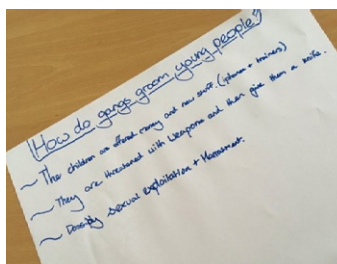 How do gangs groom young people?
~ The children are offered money and new stuff. (iphones + trainers)
~ They are threatened with weapons and then give them a knife.
~ sexual exploitation + Harassment.